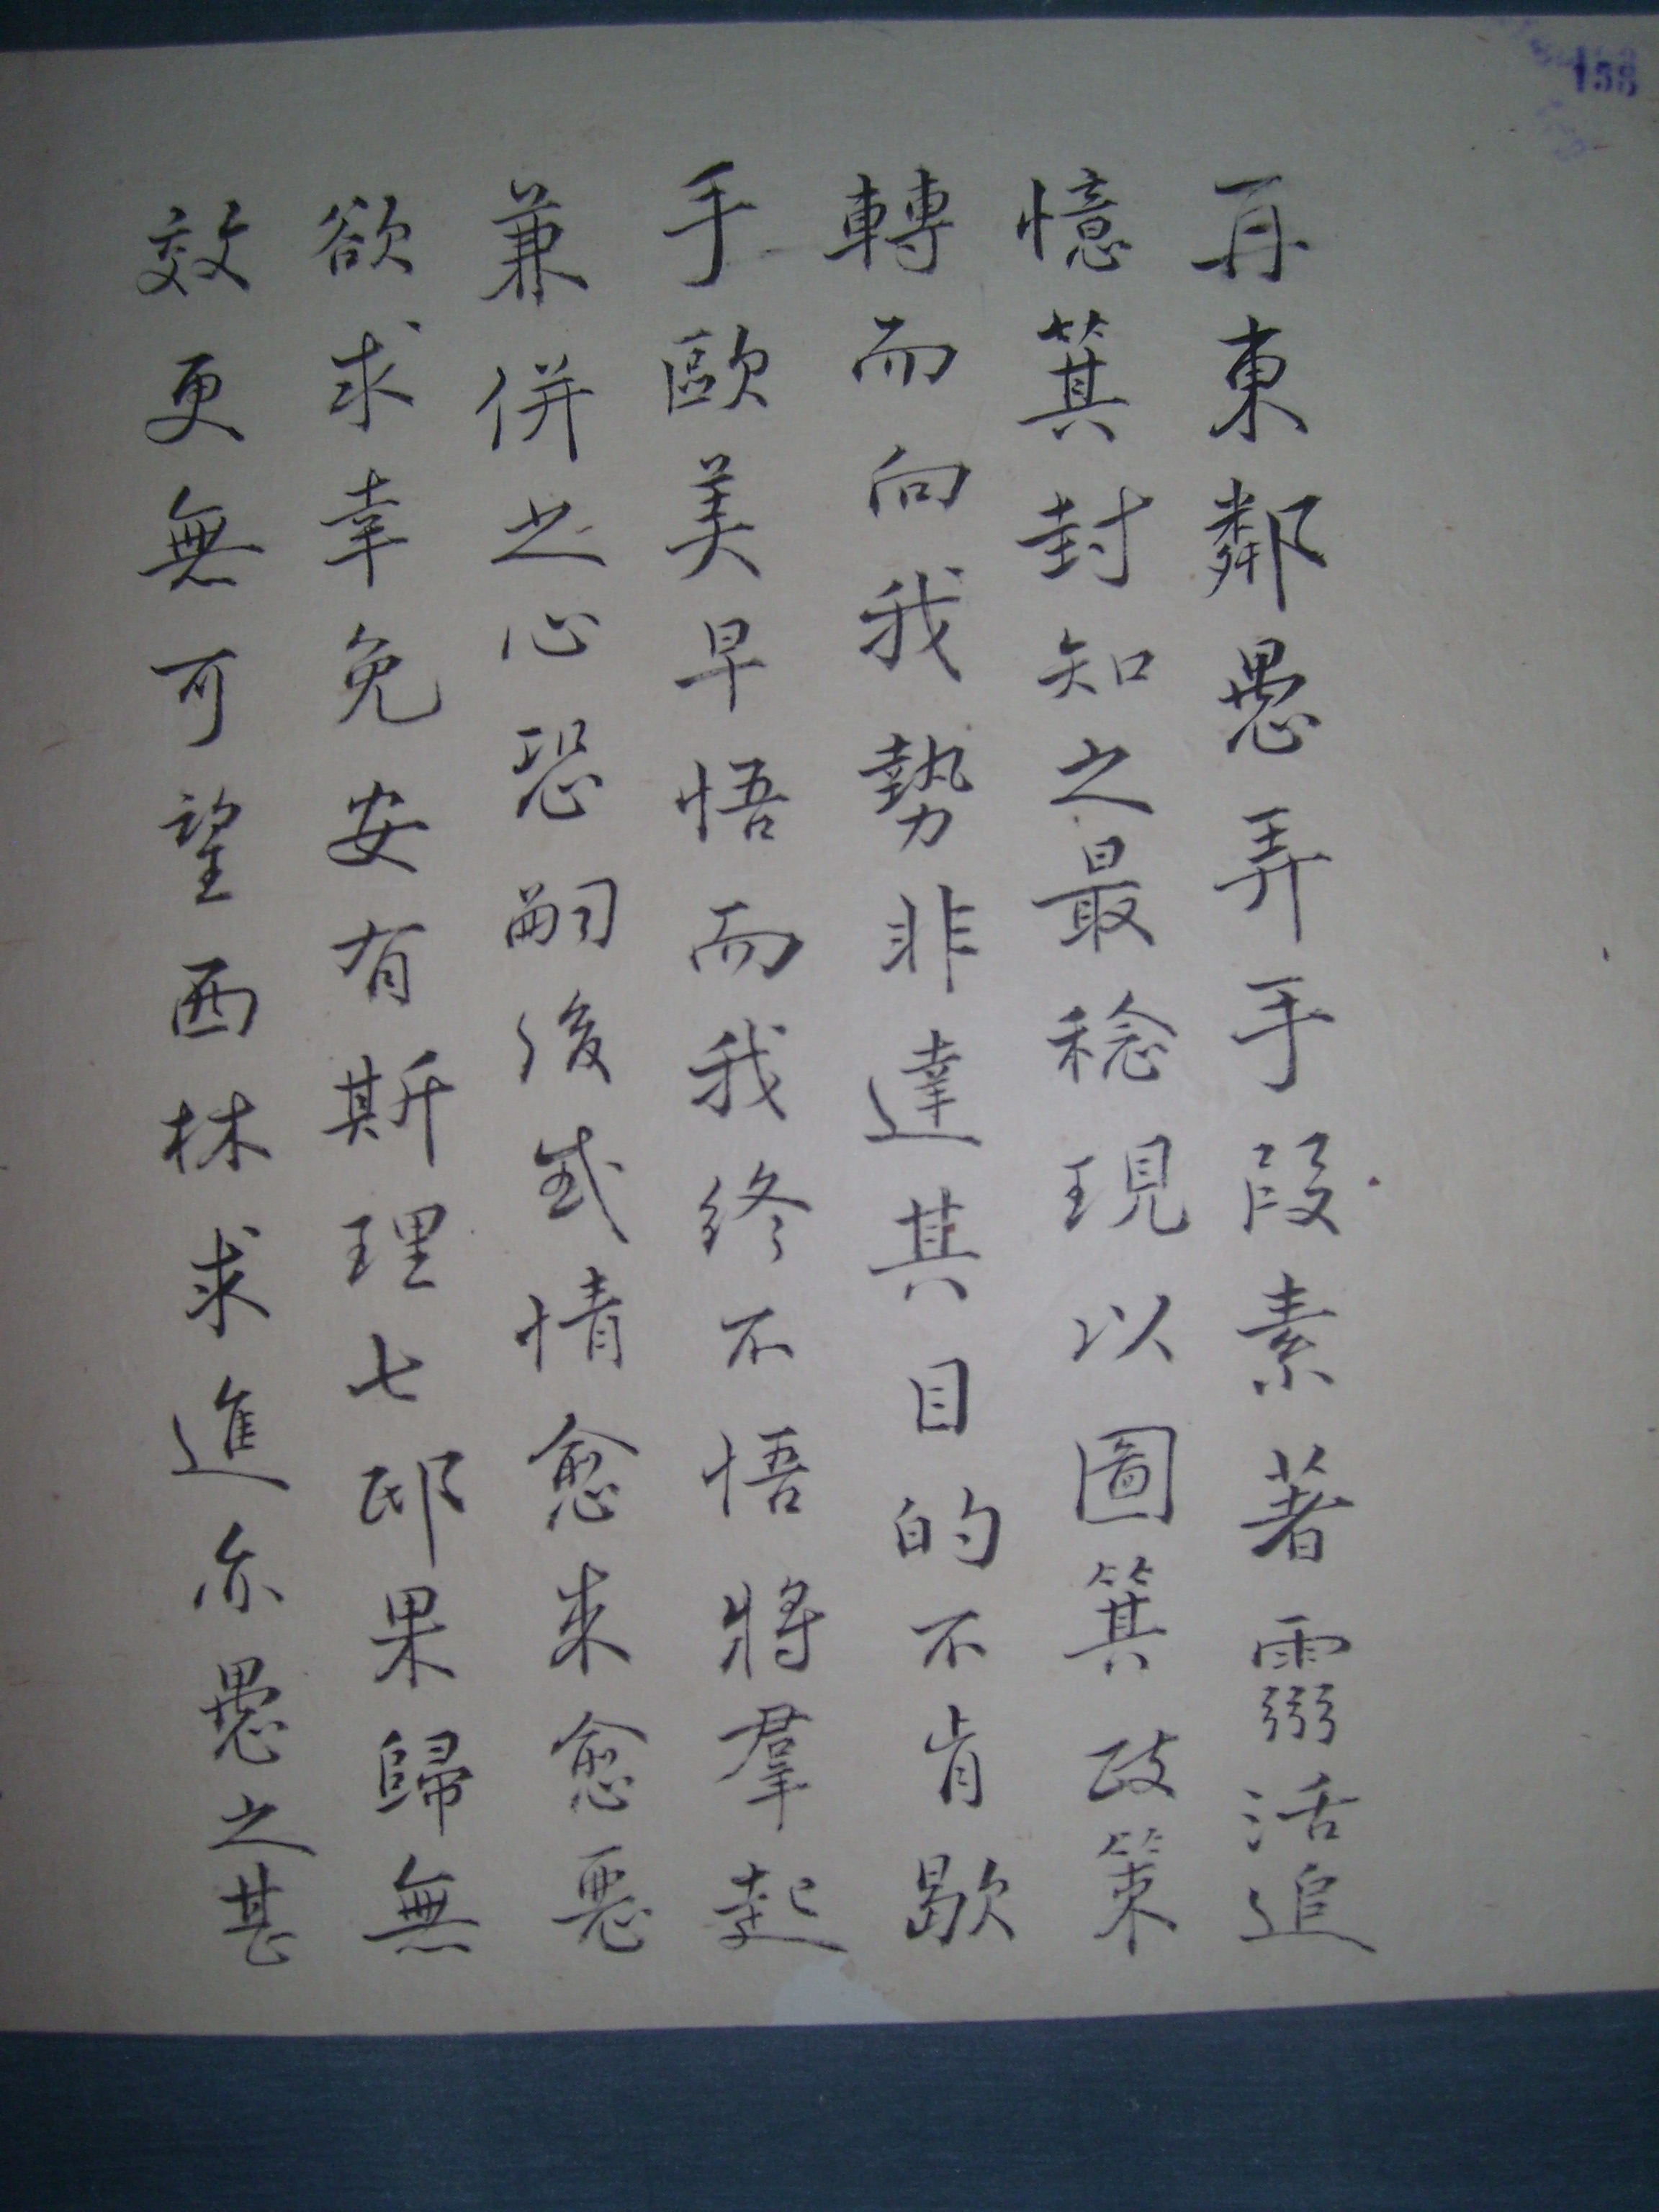 再東鄰愚弄手段素著靈活追
憶箕封知之最稔現以圖箕政策
轉而向我勢非達其目的不肯歇
手歐美早悟而我終不悟將羣起
兼併之心恐嗣後感情愈來愈惡
欲求幸免安有斯理七邸果歸無
效更無可望西林求進亦愚之甚